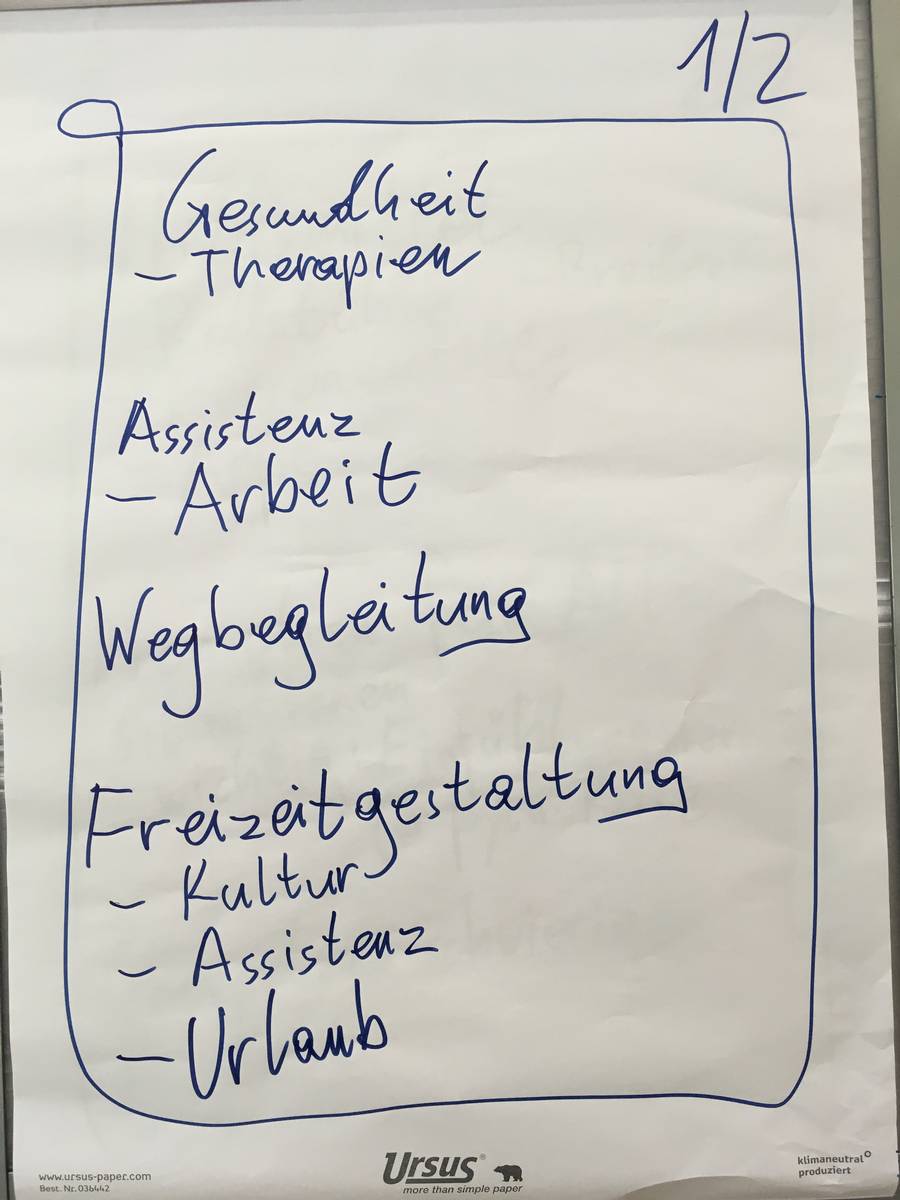 1/2
Gesundheit
- Therapien
Assistenz
- Arbeit
Wegbegleitung
Freizeitgestaltung
- Kultur
- Assistenz
- Urlaub
www.ursus-paper.com
Best. Nr. 036442
Ursus®
more than simple paper
klimaneutral
produziert